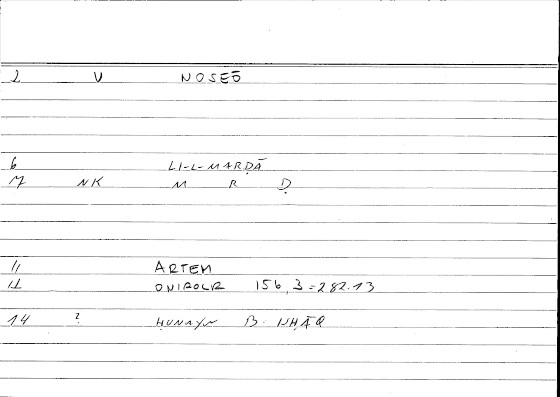 2 V NOSEŌ
6 LI-L-MARḌĀ
7 NK M R Ḍ
11 ARTEM
12 ONIROCR 156,3=282.13
14 ? ḤUNAYN B. ISḤĀQ